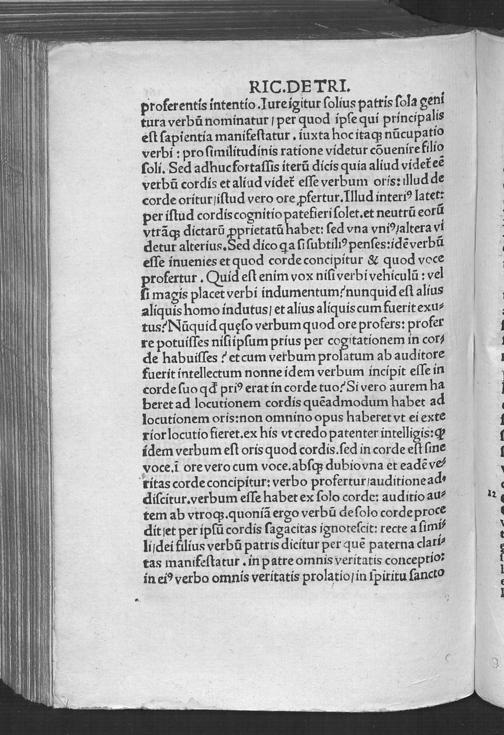 RIC.DE TRI.
proferentis intentio. Iure igitur solius patris sola geni
tura verbū nominatur/per quod ipse qui principalis
est sapientia manifestatur. iuxta hoc itaq; nūcupatio
verbi: pro similitudinis ratione videtur cōuenire filio
soli. Sed adhuc fortassis iterū dicis quia aliud videt̃ eē
verbū cordis et aliud videt̃ esse verbum oris: illud de
corde oritur/istud vero ore ꝓfertur. Illud interiꝰ latet:
per istud cordis cognitio patefieri solet. et neutrū eorū
vtrāq; dictarū ꝓprietatū habet: sed vna vniꝰ/altera vi
detur alterius. Sed dico ꝙ a si subtiliꝰ penses: idē verbū
esse inuenies et quod corde concipitur & quod voce
profertur. Quid est enim vox nisi verbi vehiculū: vel
si magis placet verbi indumentum? nunquid est alius
aliquis homo indutus/et alius aliquis cum fuerit exu-
tus? Nūquid quęso verbum quod ore profers: profer
re potuisses nisi ipsum prius per cogitationem in cor/
de habuisses? et cum verbum prolatum ab auditore
fuerit intellectum nonne idem verbum incipit esse in
corde suo qđ priꝰ erat in corde tuo? Si vero aurem ha
beret ad locutionem cordis quēadmodum habet ad
locutionem oris: non omnino opus haberet vt ei exte
rior locutio fieret. ex his vt credo patenter intelligis: ꝙ
idem verbum est oris quod cordis. sed in corde est sine
voce. ī ore vero cum voce. absq; dubio vna et eadē ve/
ritas corde concipitur: verbo profertur/auditione ad-
discitur. verbum esse habet ex solo corde: auditio au-
tem ab vtroq;. quoniā ergo verbū de solo corde proce
dit/et per ipsū cordis sagacitas ignotescit: recte a simi
li/dei filius verbū patris dicitur per quē paterna clari-
tas manifestatur. in patre omnis veritatis conceptio:
in eiꝰ verbo omnis veritatis prolatio/in spiritu sancto
12